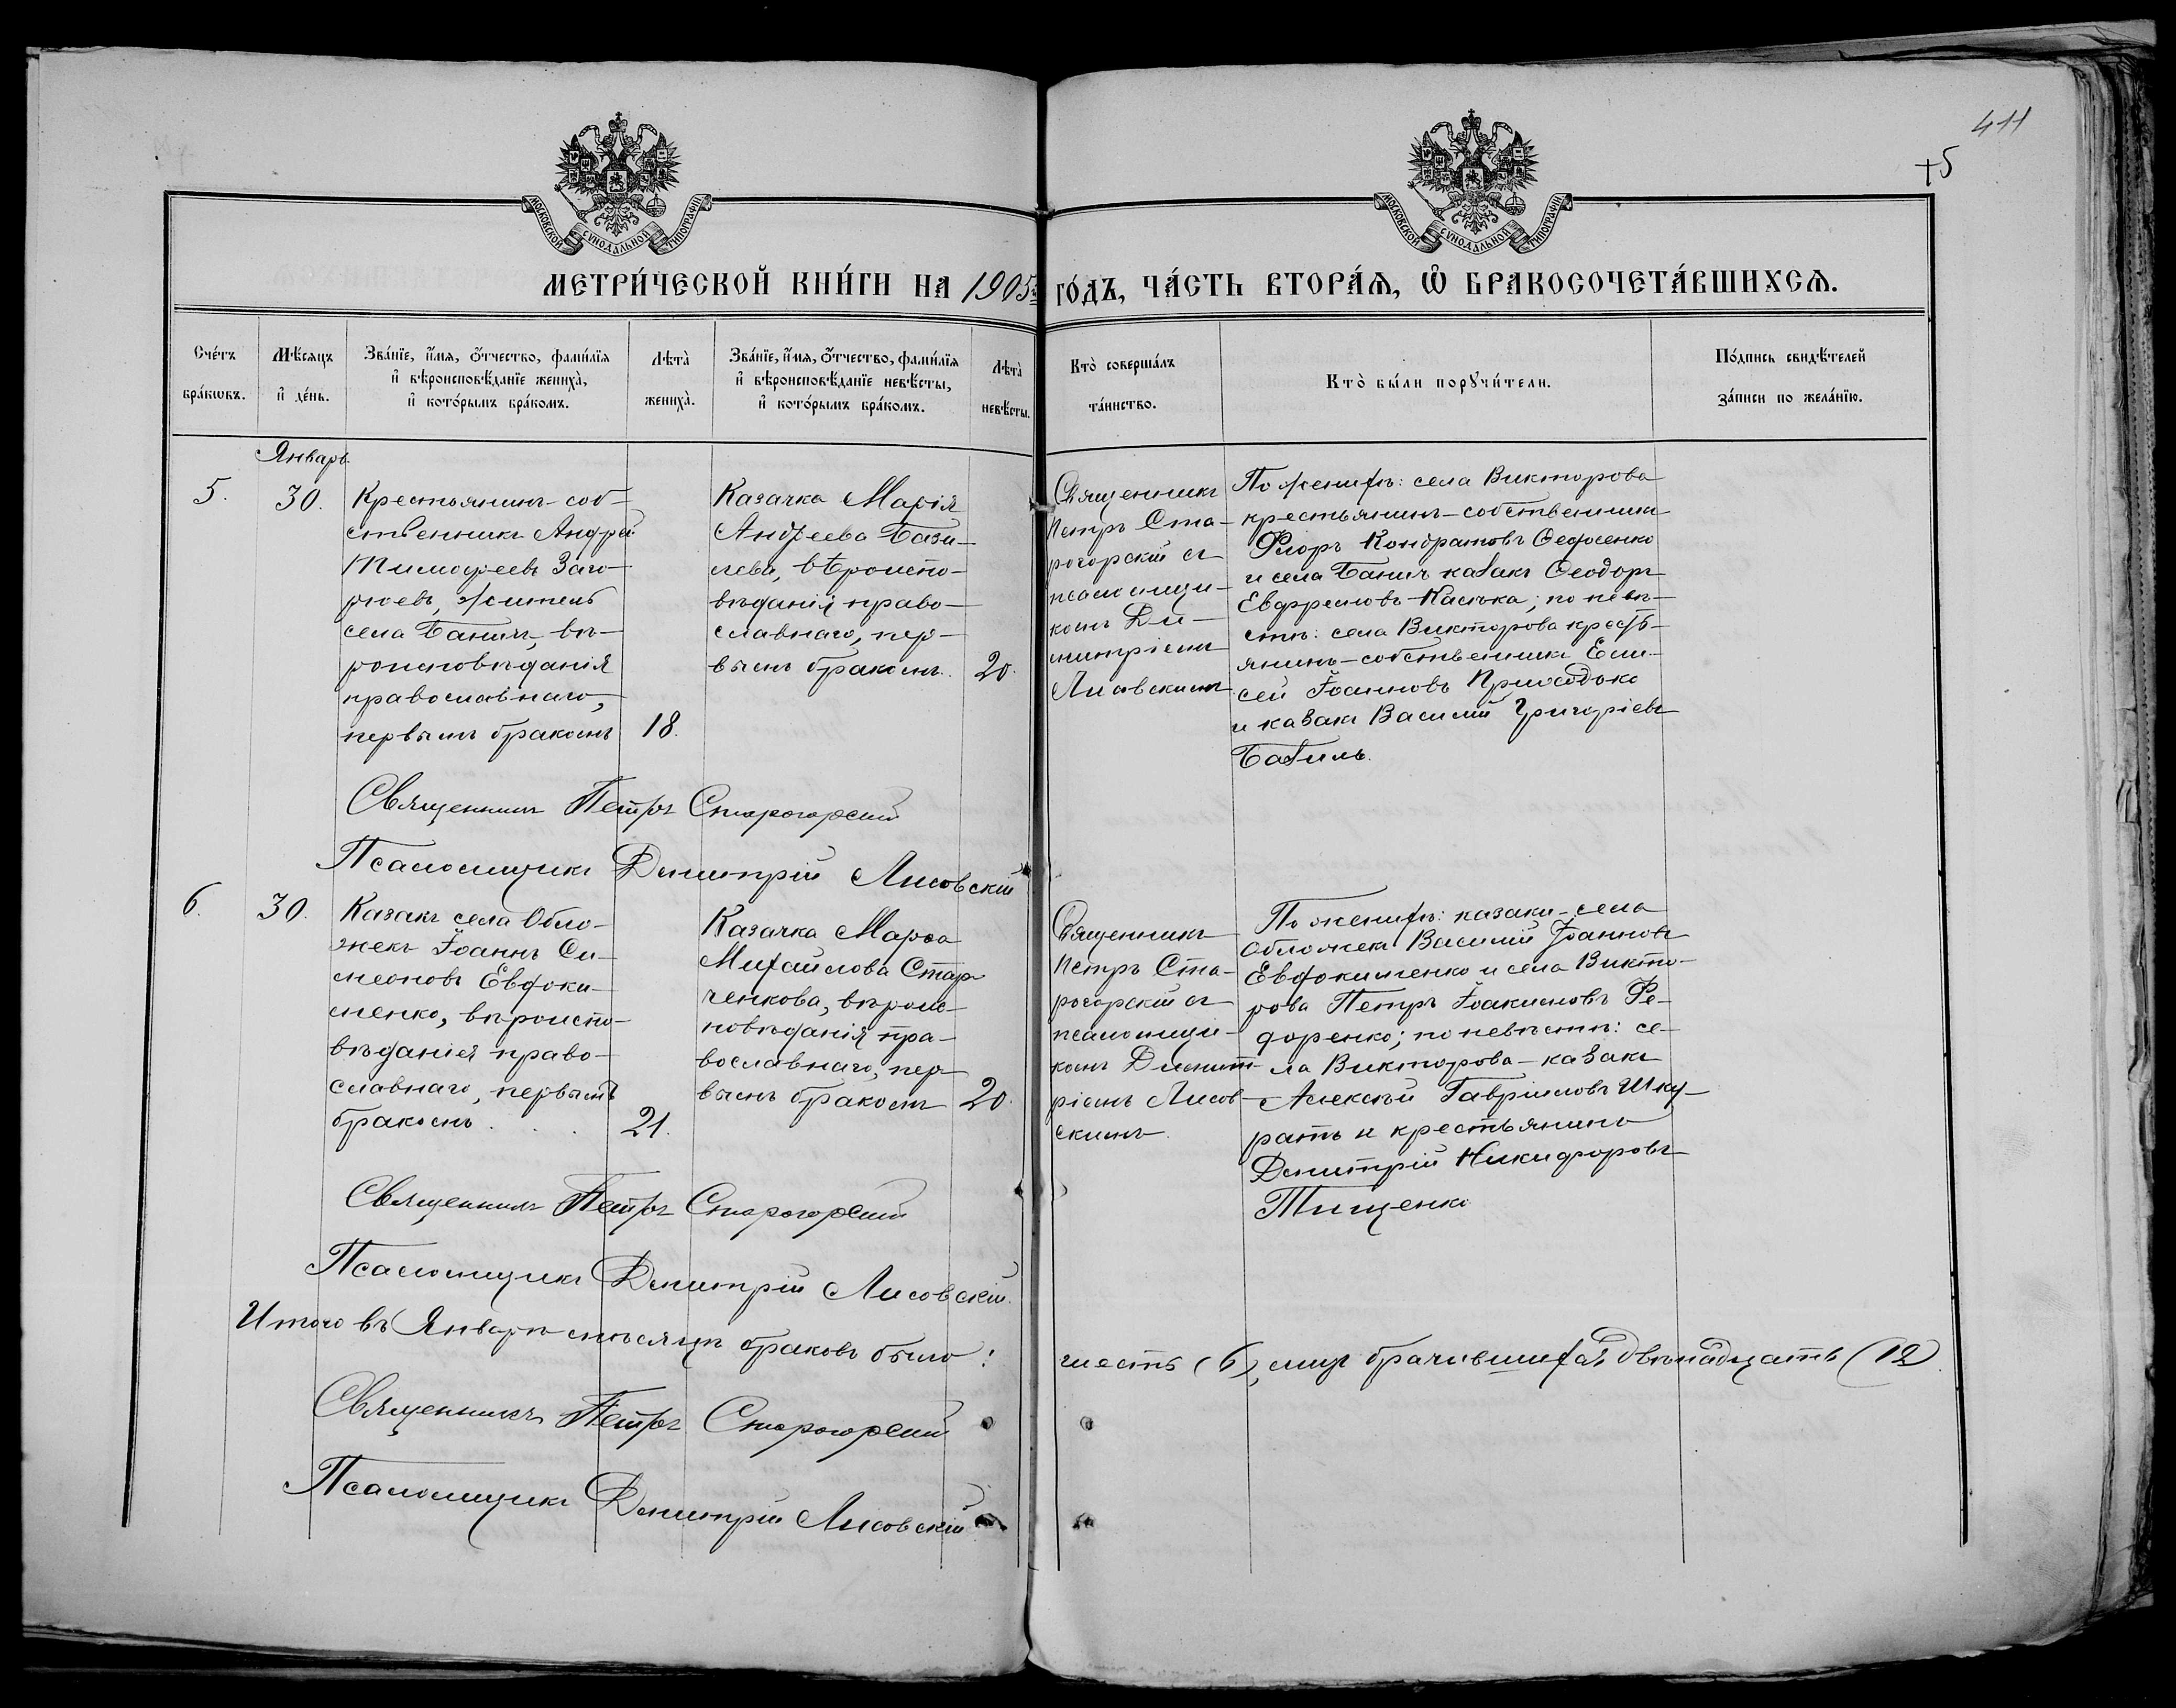 411
+5
МОСКОВСКОЙ СУНОДАЛЬНОЙ ТИПОГРАФІИ
МОСКОВСКОЙ СУНОДАЛЬНОЙ ТИПОГРАФІИ
МЕТРИ́ЧЕСКОЙ КНИ́ГИ НА 1905й ГО́ДЪ, ЧА́СТЬ ВТОРА́Ѧ, Ѽ БРАКОСОЧЕТА́ВШИХСѦ.
Сче́тъ
бра́кѡвъ.
Мѣ́сяцъ
и҆ де́нь.
Зва́нїе, и҆́мя, ѻ҆́тчество, фами́лїя
и҆ вѣроисповѣ́данїе жениха̀,
и҆ кото́рымъ бра́комъ.
Лѣ́та̀
жениха̀.
Зва́нїе, и҆́мя, ѻ҆́тчество, фами́лїя
и҆ вѣроисповѣ́данїе невѣ́сты,
и҆ кото́рымъ бра́комъ.
Лѣ́та̀
невѣ́сты.
Кто̀ соверша́лъ
та́инство.
Кто̀ бы́ли порꙋчи́тели.
По́дпись свидѣ́телей
за́писи по жела́нїю.
Январь.
5.
30.
Крестьянинъ-соб-
ственникъ Андрей
Тимофеевъ Заго-
рюевъ, житель
села Баничъ, вѣ-
роисповѣданія
православнаго,
первымъ бракомъ
18.
Казачка Марія
Андреева Бази-
лева, вѣроиспо-
вѣданія право-
славнаго, пер-
вымъ бракомъ.
20.
Священникъ
Петръ Ста-
рогорскій съ
псаломщи-
комъ Ди-
митріемъ
Лисовскимъ.
По женихѣ: села Викторова
крестьянинъ-собственникъ
Флоръ Кондратовъ Ѳедосенко
и села Баничъ казакъ Ѳеодоръ
Евфремовъ Касъка; по невѣ-
стѣ: села Викторова кресть-
янинъ-собственникъ Ели-
сей Іоанновъ Приходько
и казакъ Василій Григоріевъ
Базиль.
Священникъ Петръ Старогорскій
Псаломщикъ Димитрій Лисовскій
6.
30.
Казакъ села Обло-
жекъ Іоаннъ Си-
меоновъ Евдоки-
менко, вѣроиспо-
вѣданія право-
славнаго, первымъ
бракомъ . . .
21.
Казачка Марѳа
Михайлова Стар-
ченкова, вѣроис-
повѣданія пра-
вославнаго, пер-
вымъ бракомъ
20.
Священникъ
Петръ Ста-
рогорскій съ
псаломщи-
комъ Димит-
ріемъ Лисов-
скимъ.
По женихѣ: казаки-села
Обложекъ Василій Іоанновъ
Евдокименко и села Викто-
рова Петръ Іоакимовъ Ѳе-
доренко; по невѣстѣ: се-
ла Викторова-казакъ
Алексѣй Гавриловъ Шку-
ратъ и крестьянинъ
Димитрій Никифоровъ
Тищенко
Священникъ Петръ Старогорскій
Псаломщикъ Димитрій Лисовскій.
Итого въ Январѣ мѣсяцѣ браковъ было: шесть (6), лицъ брачившихся двѣнадцать (12).
Священникъ Петръ Старогорскій
Псаломщикъ Димитрій Лисовскій